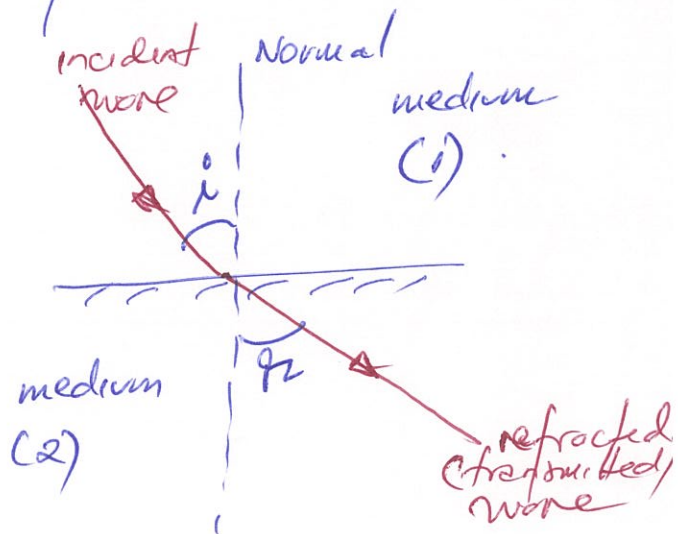 incident
wave
Normal
medium
(1)
i
r
medium
(2)
refracted
(transmitted)
wave